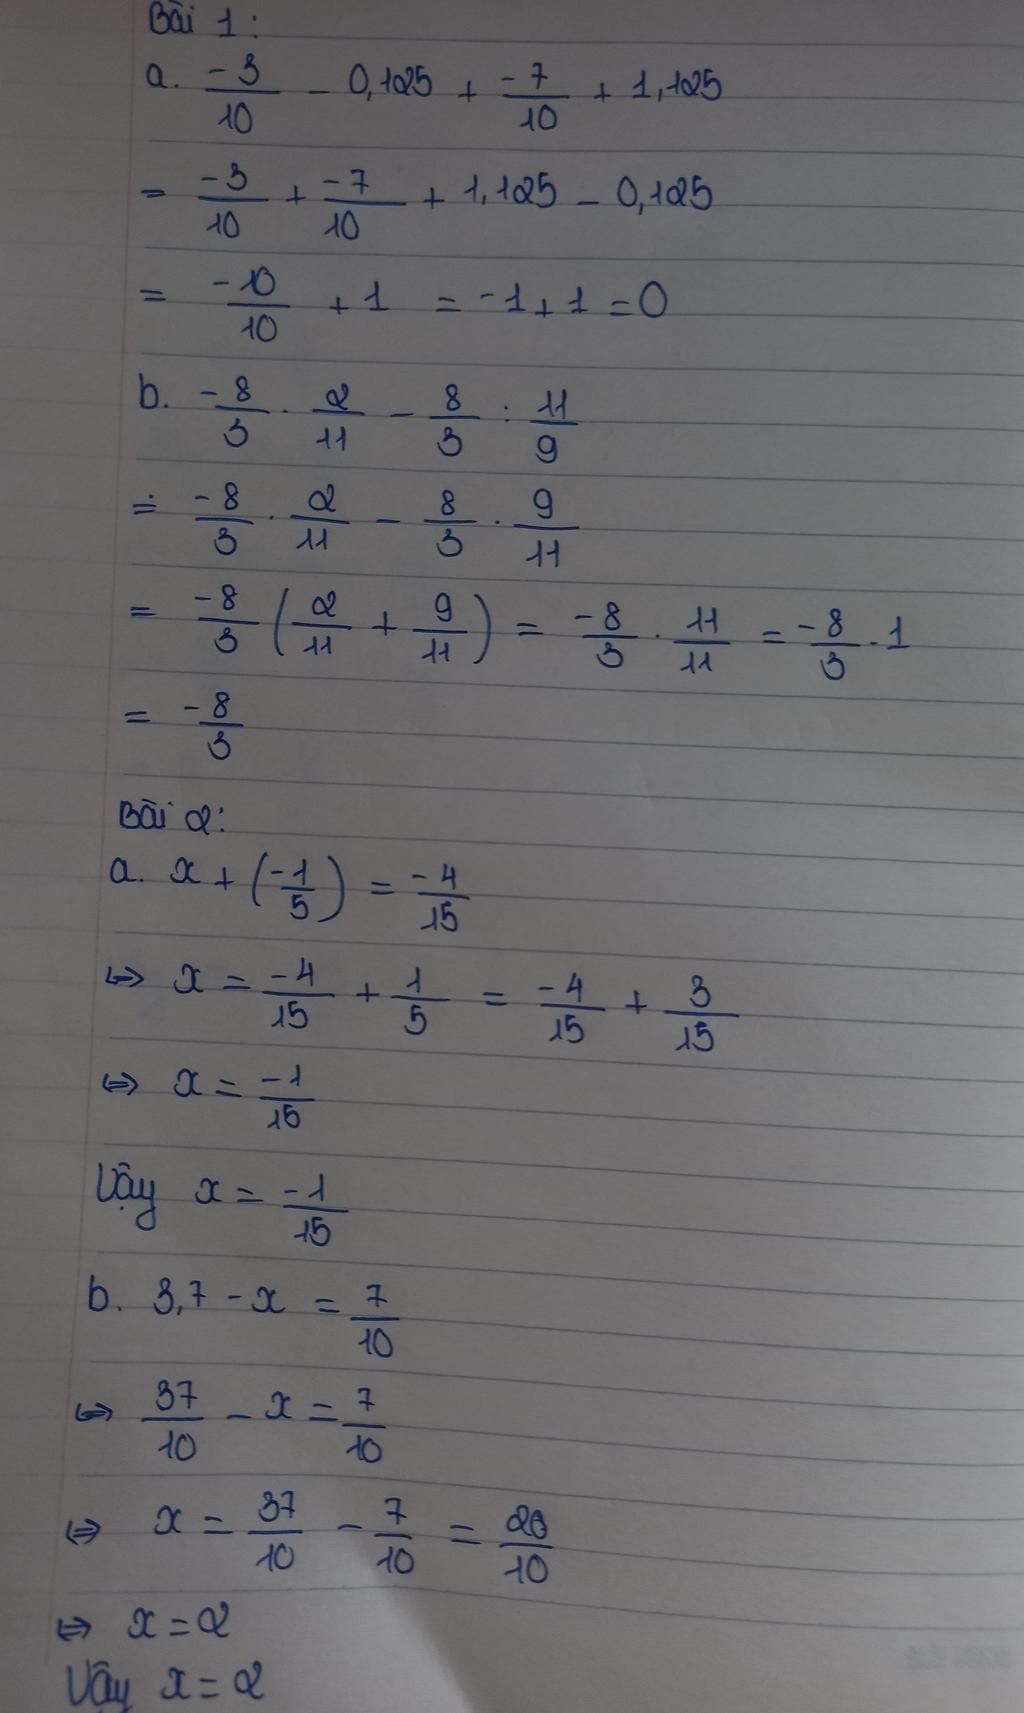 Bài 1:
a. -3/10 - 0,125 + -7/10 + 1,125
= -3/10 + -7/10 + 1,125 - 0,125
= -10/10 + 1 = -1 + 1 = 0
b. -8/3 . 2/11 - 8/3 : 11/9
= -8/3 . 2/11 - 8/3 . 9/11
= -8/3 (2/11 + 9/11) = -8/3 . 11/11 = -8/3 . 1
= -8/3
Bài 2:
a. x + (-1/5) = -4/15
⇔ x = -4/15 + 1/5 = -4/15 + 3/15
⇔ x = -1/15
Vậy x = -1/15
b. 3,7 - x = 7/10
⇔ 37/10 - x = 7/10
⇔ x = 37/10 - 7/10 = 20/10
⇔ x = 2
Vậy x = 2